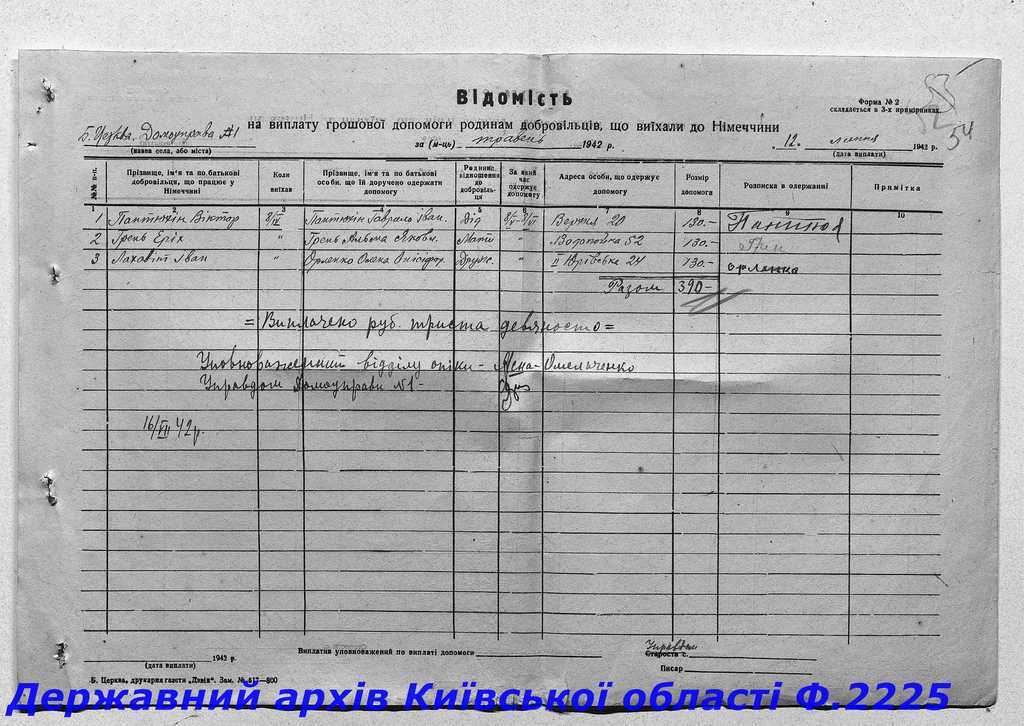 Форма № 2
складається в 3-х примірниках.
54
Відомість
Б. Церква. Домоуправа №1 на виплату грошової допомоги родинам добровільців, що виїхали до Німеччини
(назва села, або міста)
за (м-ць) травень 1942 р.
12. липня 1942 р.
(дата виплати)
№№ п-п. Прізвище, ім'я та по батькові добровільця, що працює у Німеччині Коли виїхав Прізвище, ім'я та по батькові особи, що їй доручено одержати допомогу Родинне відношення до добровільця За який час одержує допомогу Адреса особи, що одержує допомогу Розмір допомоги Розписка в одержанні Примітка
1 2 3 4 5 6 7 8 9 10
1 Пантюхін Віктор Пантюхін Гаврало Іван. Дід 20 130.-
2 Грень Еріх " Грень Альбіна Яковл. Мати " 52 130.-
3 Лаховіт Іван " Орленко Олена Друж. " II Юрівська 24 130.- Орленко
Разом 390-
= Виплачено руб. триста девяносто =
Уповноважений відділу опіки - Омельченко
Управдом Домоуправи №1 -
16/VII 42 р.
1942 р.
(дата виплати)
Виплатив уповноважений по виплаті допомоги
Управдом
Староста с.
Писар
Б. Церква, друкарня газети „Дзвін". Зам. № 617—800
Державний архів Київської області Ф.2225